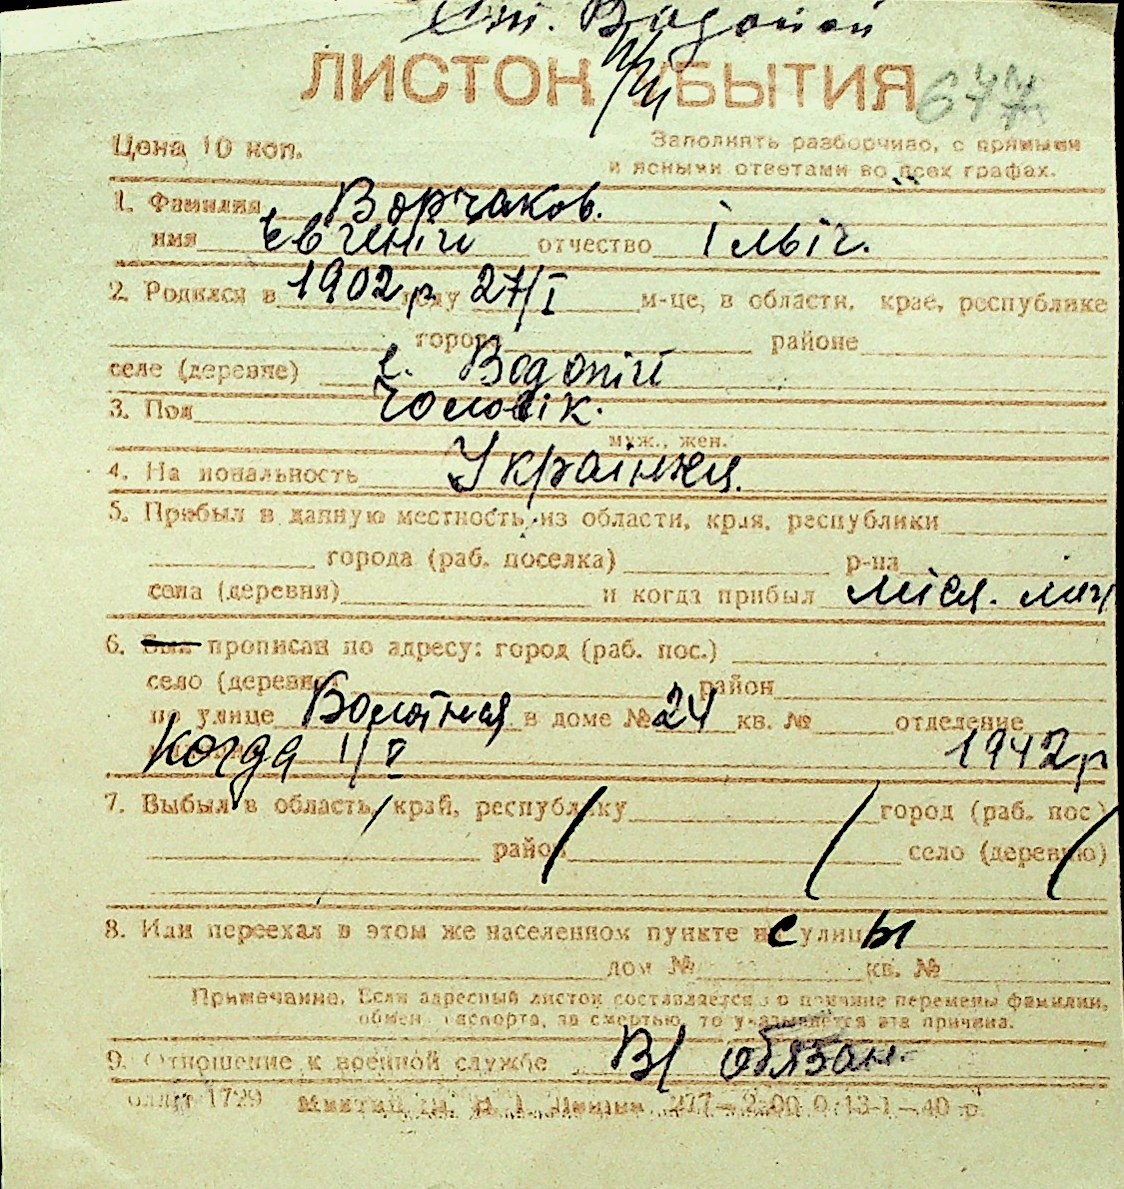 Ст. Водопой
ЛИСТОК УБЫТИЯ 677
Цена 10 коп. Заполнять разборчиво, с прямыми
и ясными ответами во всех графах.
1. Фамилия Ворчаков.
имя Євгеній отчество Ільіч.
2. Родился в 1902 р году 27/I м-це, в области, крае, республике
города районе
селе (деревне) с. Водопій
3. Пол Чоловік.
муж., жен.
4. Национальность Українец.
5. Прибыл в данную местность из области, края, республики
города (раб. поселка) р-на
села (деревни) и когда прибыл місц. жит
6. Был прописан по адресу: город (раб. пос.)
село (деревня) район
по улице Болотная в доме № 24 кв. № отделение
Когда 1/V 1942 р
7. Выбыл в область, край, республику город (раб. пос)
район село (деревню)
8. Или переехал в этом же населенном пункте с улицы
дом № кв. №
Примечание. Если адресный листок составляется по причине перемены фамилии,
обмен паспорта, за смертью, то указывается эта причина.
9. Отношение к военной службе В/обязан.
1729